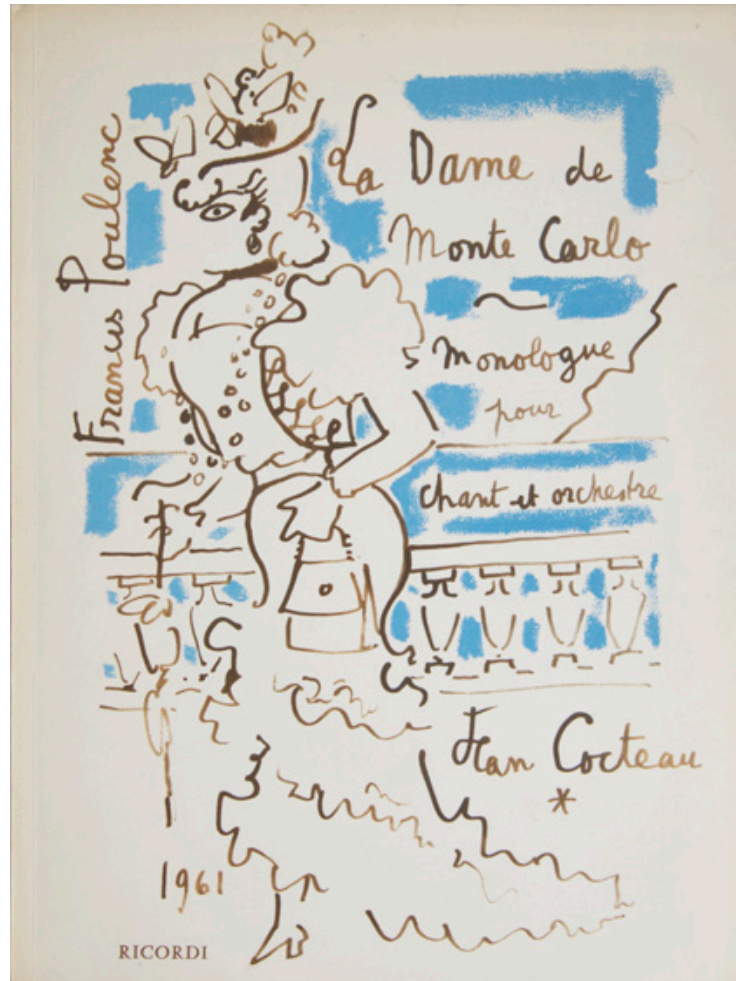 Francis Poulenc
La Dame de
Monte Carlo
Monologue
pour
chant et orchestre
Jean Cocteau
*
1961
RICORDI